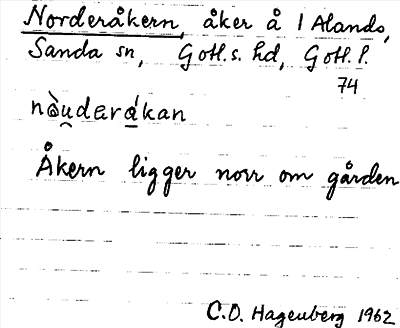 Norderåkern, åker å 1 Alands,
Sanda sn, Gotl. s. hd, Gotl. l.
74
nòu̯dɛrákan
Åkern ligger norr om gården
C.O. Hagenberg 1962